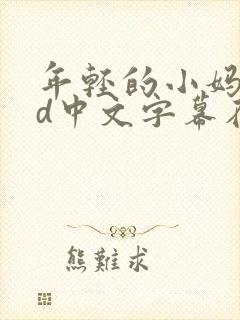 年轻的小妈
d中文字幕
熊難求